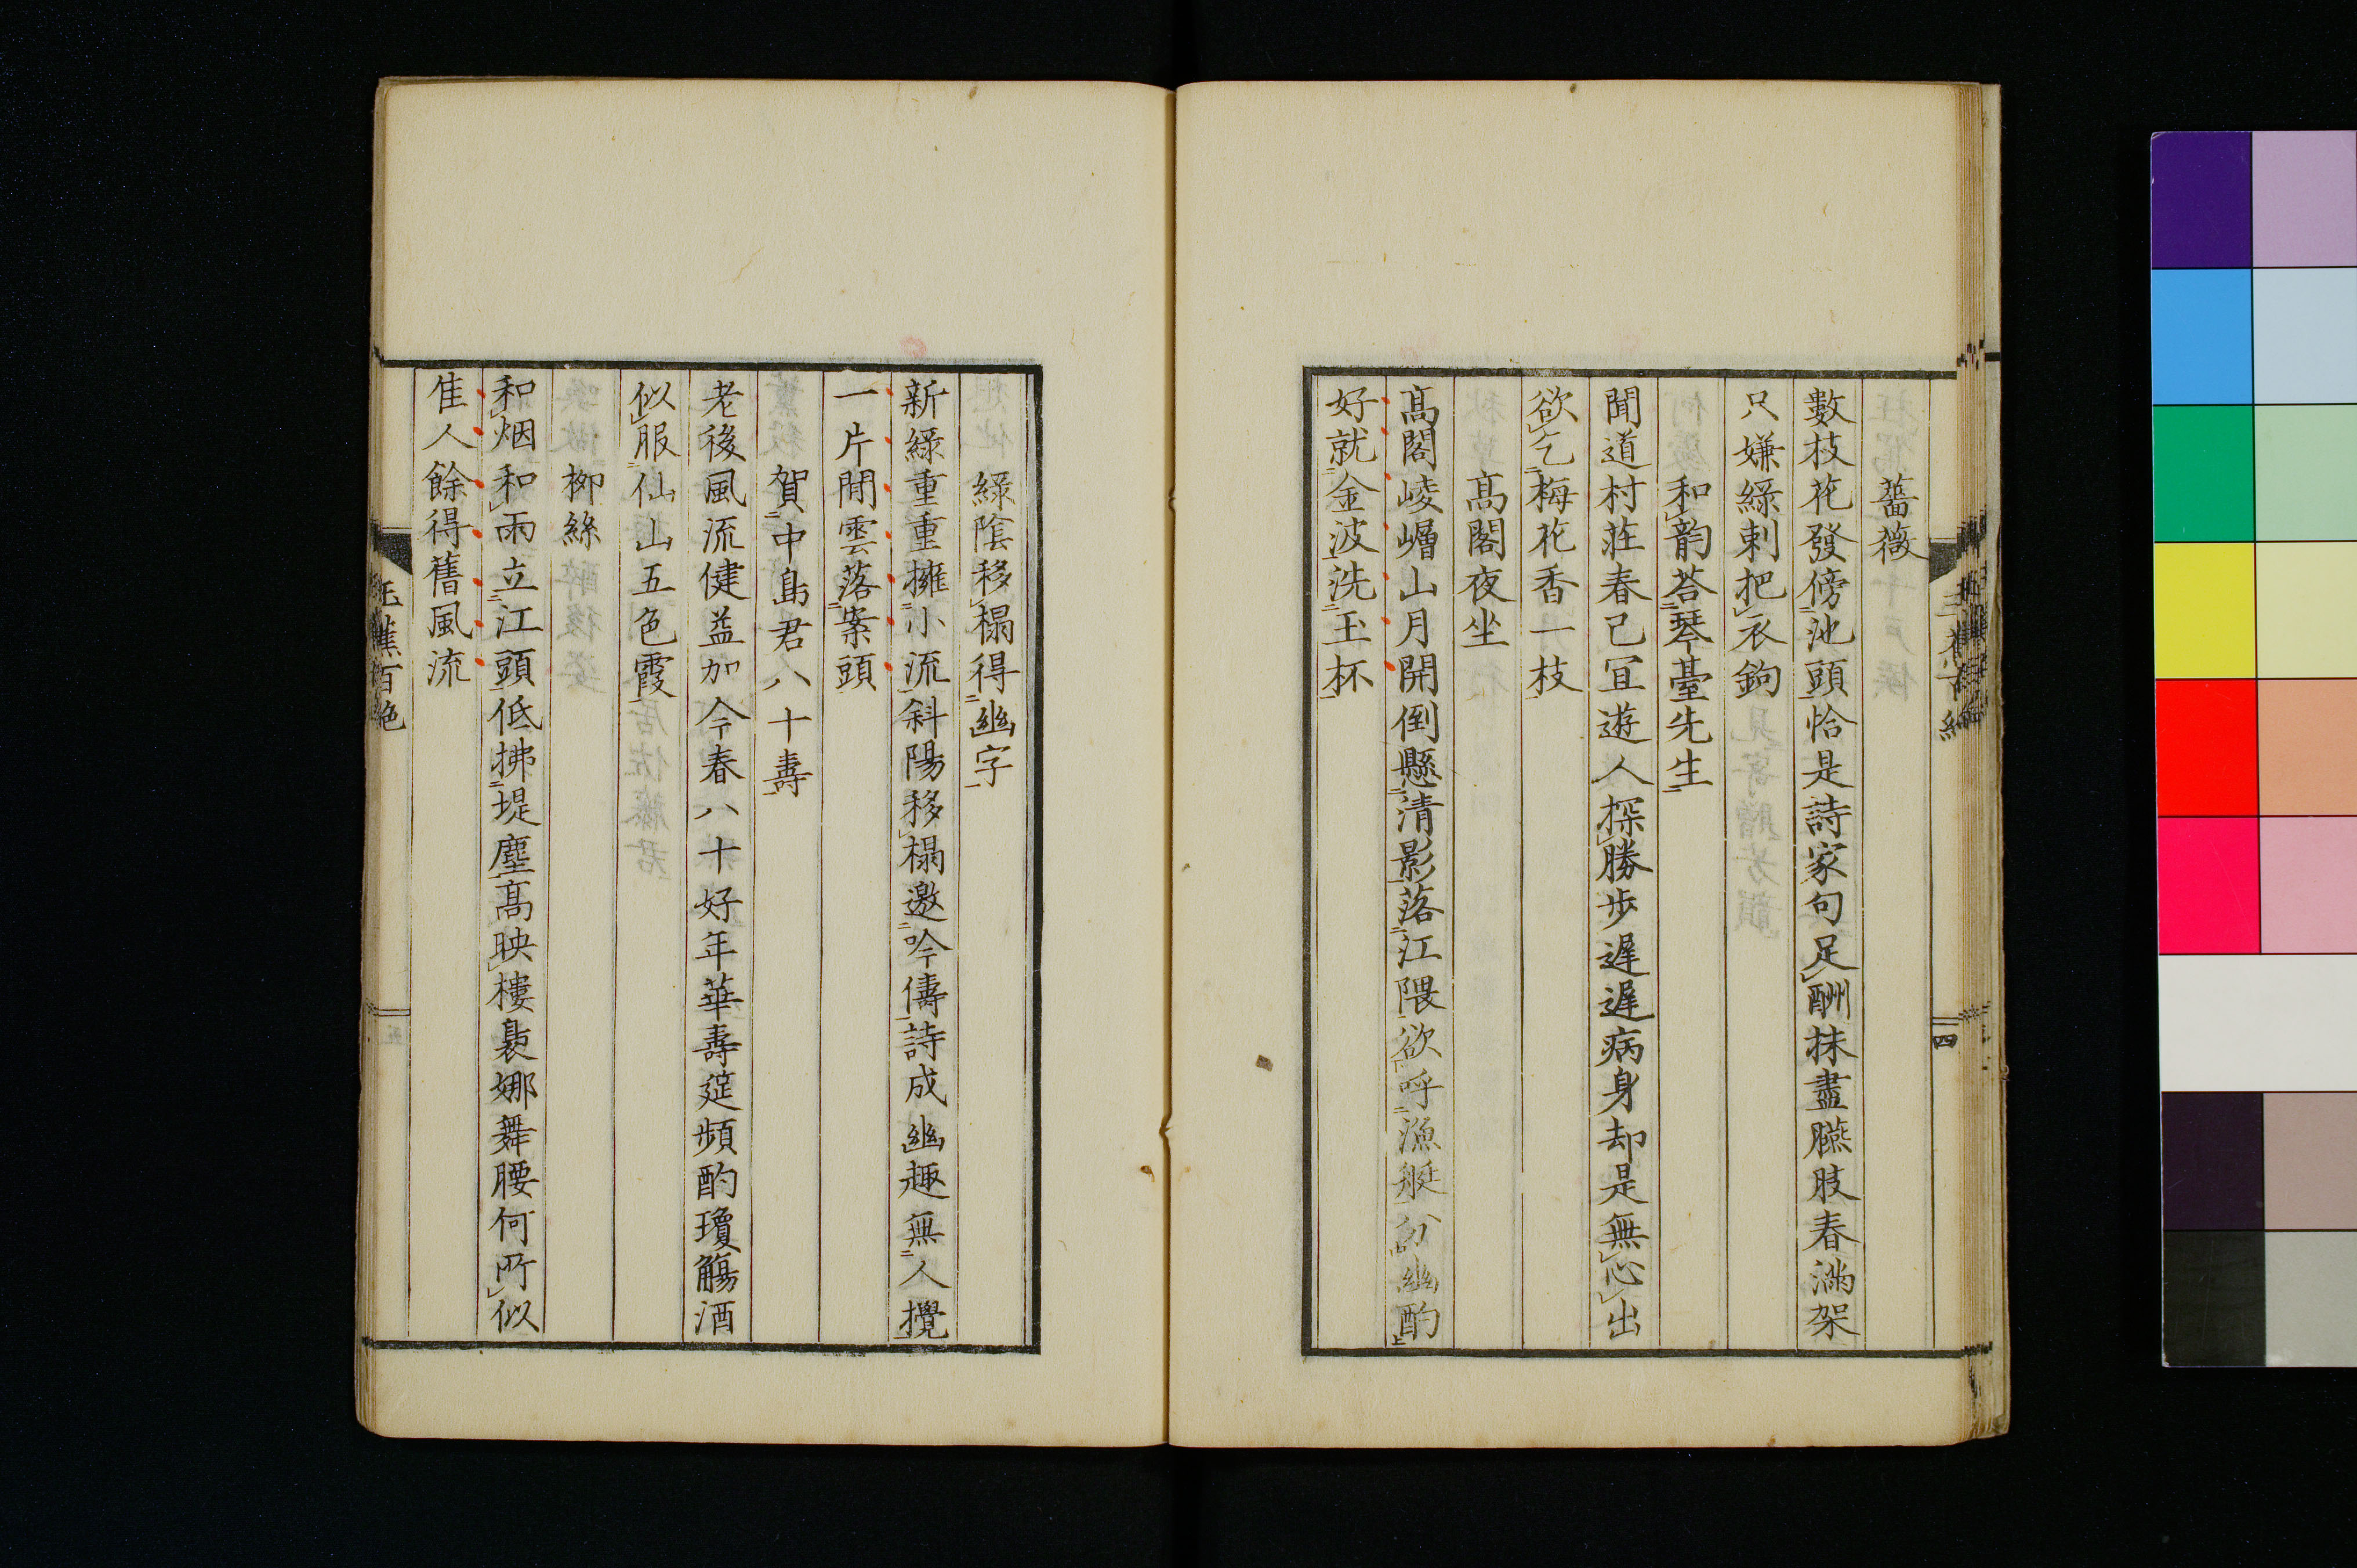 薔薇
數枝花發傍池頭恰是詩家句足酬抹盡臙肢春滿架
只嫌緑刺把衣鉤
和韵荅琴臺先生
聞道村莊春已冝遊人探勝歩遲遲病身却是無心出
欲乞梅花香一枝
髙閣夜坐
髙閣崚嶒山月開倒懸清影落江隈欲呼漁艇分幽酌
好就金波洗玉杯
四
緑陰移榻得幽字
新緑重重擁小流斜陽移榻邀吟儔詩成幽趣無人攪
一片閒雲落案頭
賀中島君八十壽
老後風流健益加今春八十好年華壽筵頻酌瓊觴酒
似服仙山五色霞
柳絲
和烟和雨立江頭低拂堤塵髙映樓裊娜舞腰何所似
隹人餘得舊風流
蕉百絶